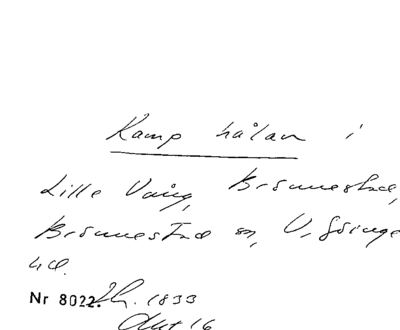 Kamp hålan i
Lille Vång, Brönnestad,
Brönnestad sn, V. Göinge
hd.
Nr 8022. Lh. 1833
Akt 16